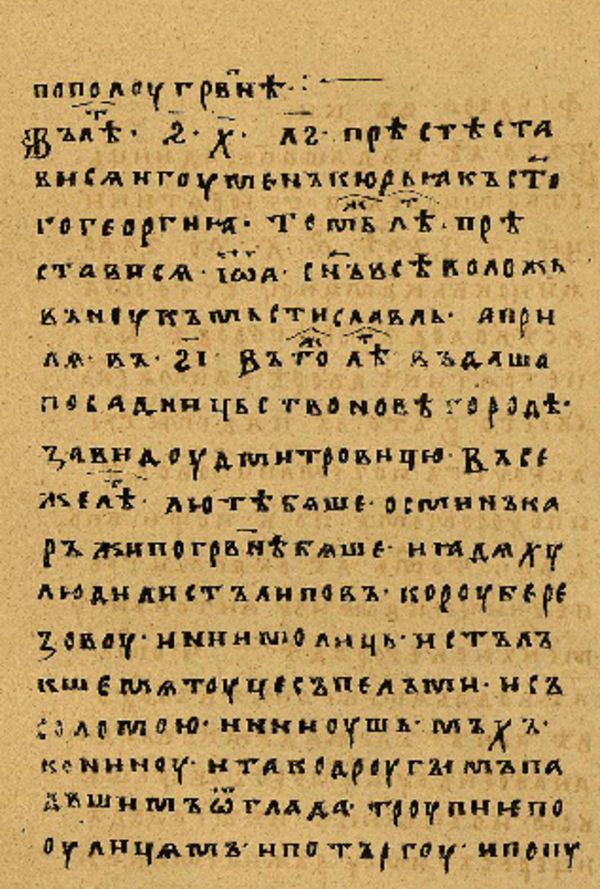 пополоу грв҃нѣ· :
Въ лѣт҇· ҂ѕ҃· х҃· л҃г· прѣстѣста
вися игоуменъ кюрьякъ ст҃о
го георгия· Томьж лѣт· прѣ
ставися· іѡ҃а· сн҃ъ всѣволожь
въноукъ мьстиславль· апри
ля· въ· ѕ҃і· Въ тож лѣт въдаша
посадницьство новѣгородѣ·
завидоу дмитровицю· Въ се
же лѣт· лютѣ бяше· осминъка
ръжи по грв҃нѣ бяше· и ꙗдяху
людиѥ листъ липовъ· короу бере
зовоу· ини молиць· истълъ
къше мятоуцесъ пелъми· и съ
соломою· инии оушь· мъхъ·
конину· и тако дроугымъ па
дъшимъ ѿ глада· троупиѥ по
оулицямъ· и по търгоу· и по пу